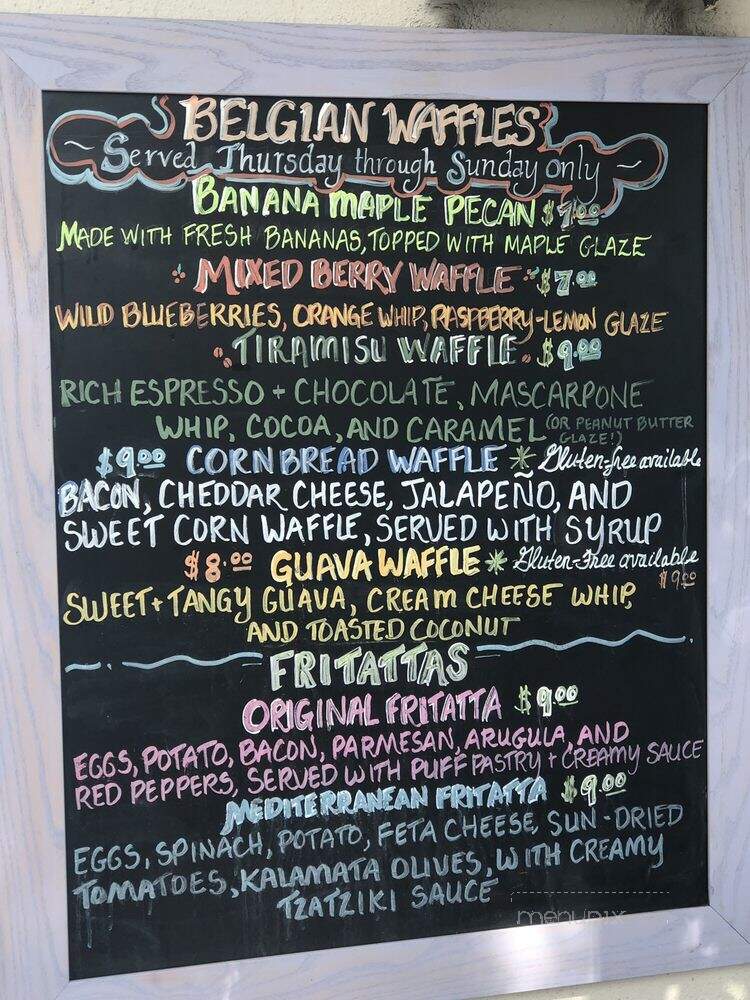 BELGIAN WAFFLES
~ Served Thursday through Sunday only ~
BANANA MAPLE PECAN $7.00
MADE WITH FRESH BANANAS, TOPPED WITH MAPLE GLAZE
MIXED BERRY WAFFLE $7.00
WILD BLUEBERRIES, ORANGE WHIP, RASPBERRY-LEMON GLAZE
TIRAMISU WAFFLE $9.00
RICH ESPRESSO + CHOCOLATE, MASCARPONE
WHIP, COCOA, AND CARAMEL (OR PEANUT BUTTER
GLAZE!)
$9.00 CORNBREAD WAFFLE * Gluten-free available
BACON, CHEDDAR CHEESE, JALAPEÑO, AND
SWEET CORN WAFFLE, SERVED WITH SYRUP
$8.00 GUAVA WAFFLE * Gluten-Free available
$9.00
SWEET + TANGY GUAVA, CREAM CHEESE WHIP,
AND TOASTED COCONUT
FRITATTAS
ORIGINAL FRITATTA $9.00
EGGS, POTATO, BACON, PARMESAN, ARUGULA, AND
RED PEPPERS, SERVED WITH PUFF PASTRY + CREAMY SAUCE
MEDITERRANEAN FRITATTA $9.00
EGGS, SPINACH, POTATO, FETA CHEESE, SUN-DRIED
TOMATOES, KALAMATA OLIVES, WITH CREAMY
TZATZIKI SAUCE
menupix